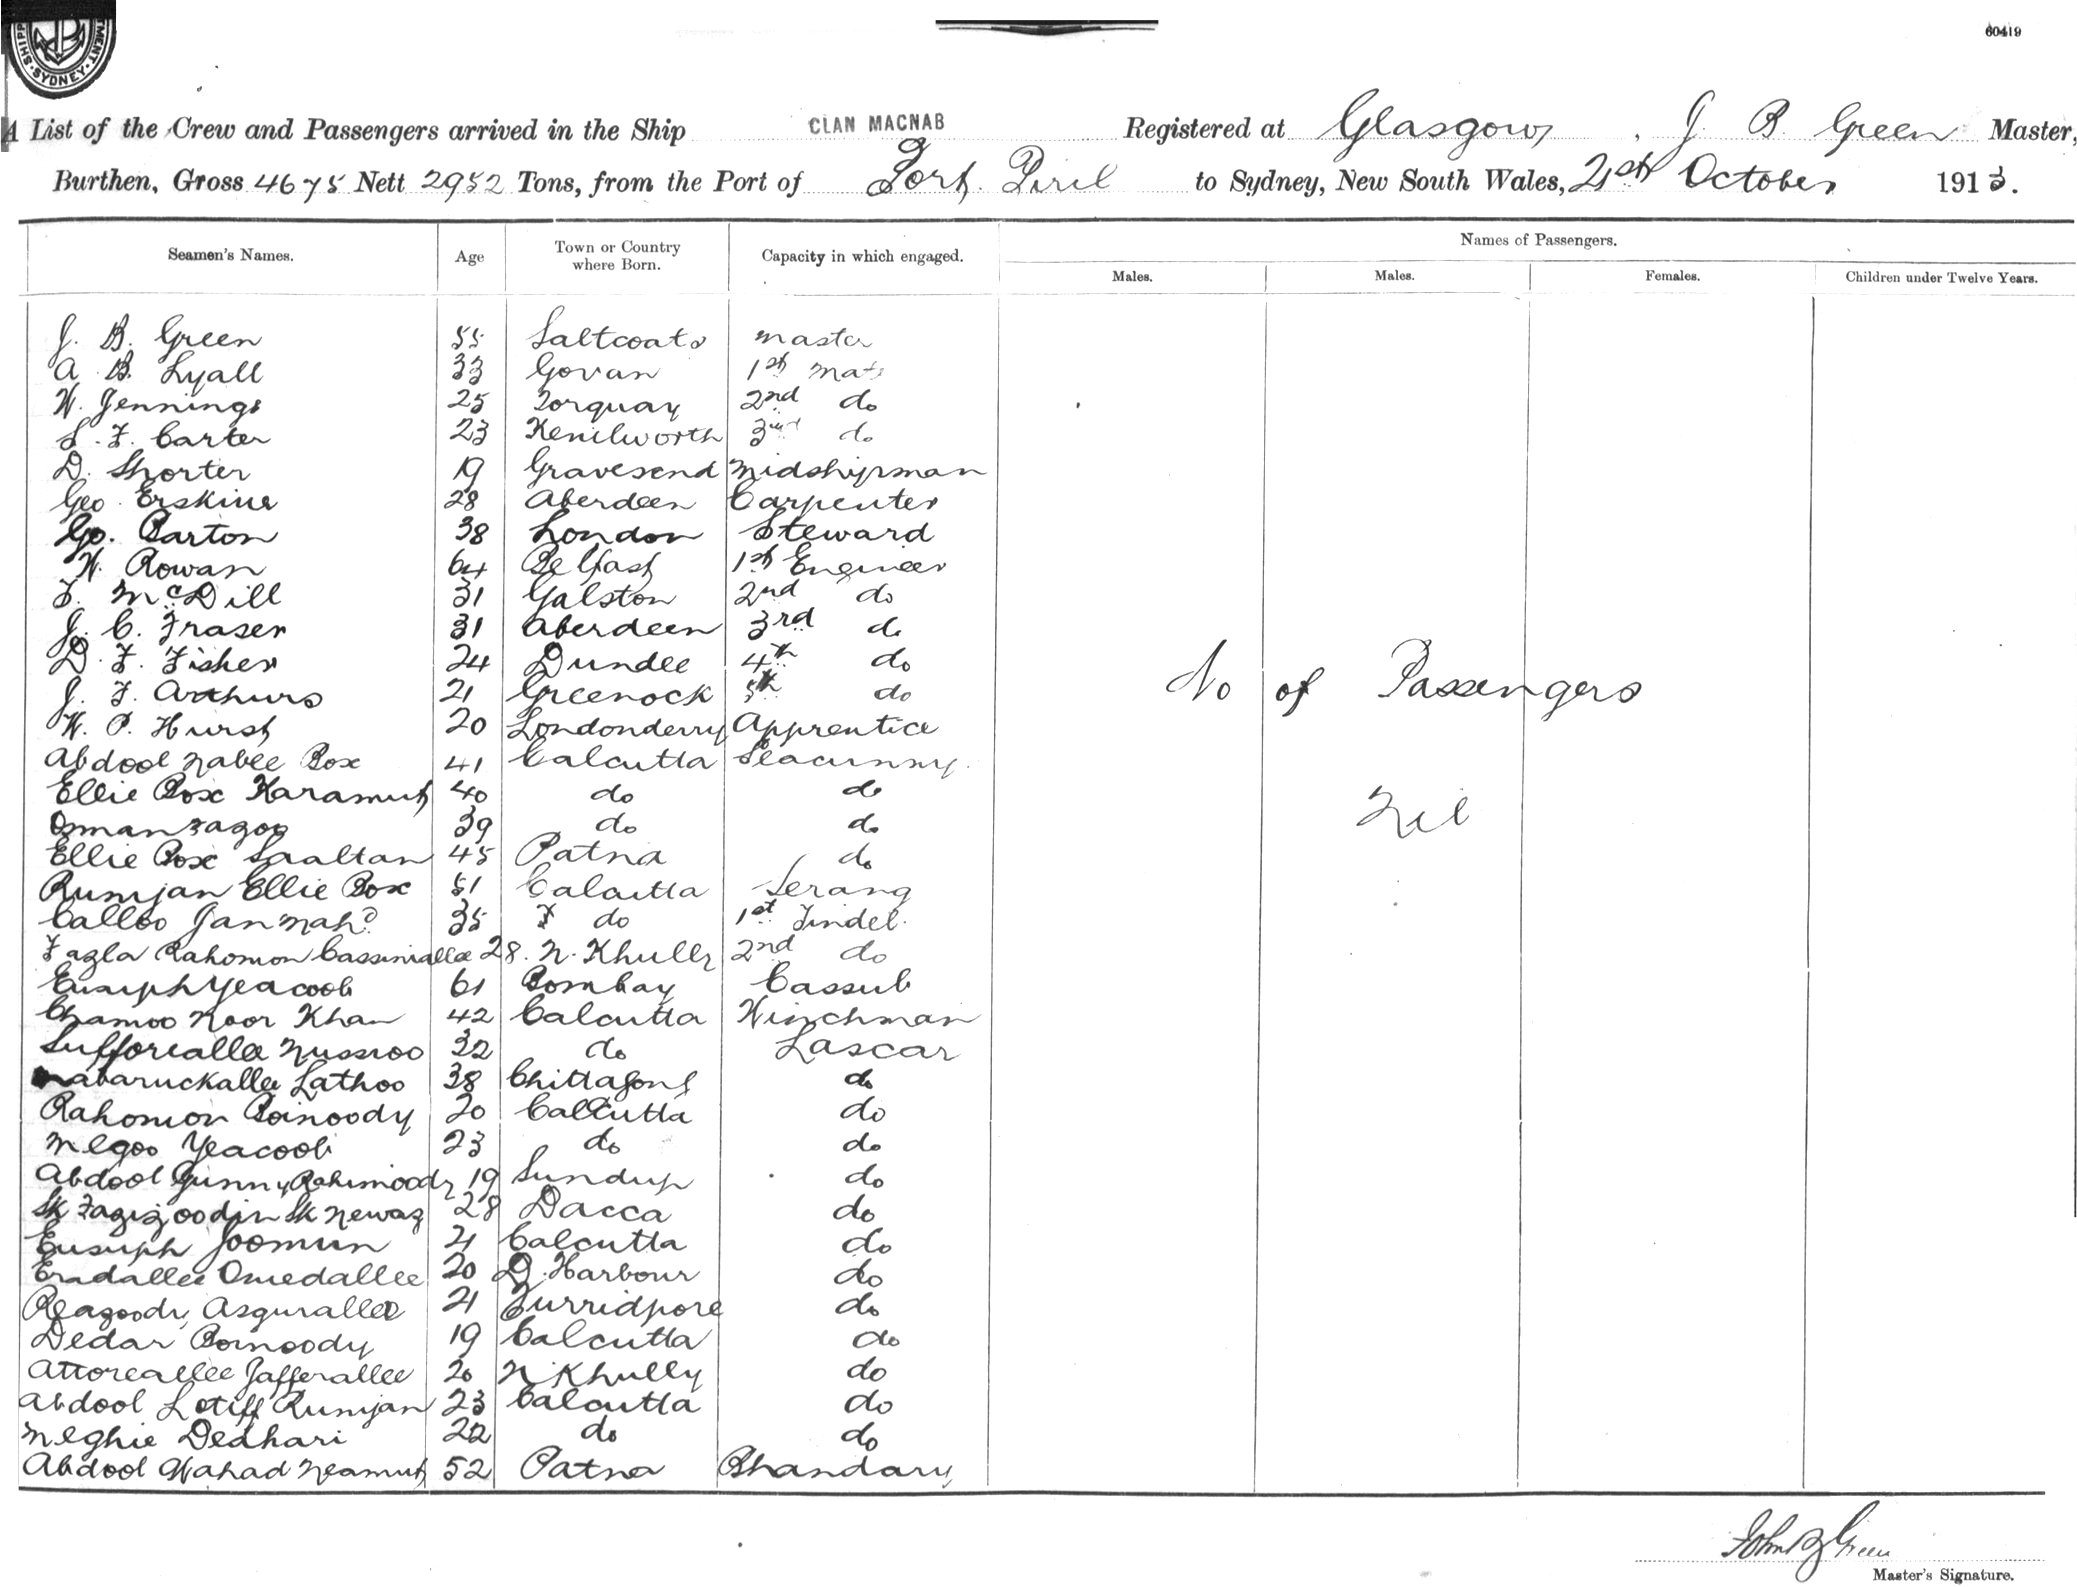 SHIPP MENT
SYDNEY
60419
A List of the Crew and Passengers arrived in the Ship CLAN MACNAB Registered at Glasgow, J. B Green Master,
Burthen, Gross 4675 Nett 2952 Tons, from the Port of Port Piril to Sydney, New South Wales, 21st October 1913.
Names of Passengers.
Seamen's Names. Age Town or Country where Born. Capacity in which engaged. Males. Males. Females. Children under Twelve Years.
J. B. Green 55 Saltcoats master
A B. Lyall 33 Govan 1st mate
W. Jennings 25 Torquay 2nd do
S. F. Carter 23 Kenilworth 3rd do
D. Shorter 19 Gravesend midshipman
Geo. Erskine 28 Aberdeen Carpenter
Go. Barton 38 London Steward
W. Rowan 64 Belfast 1st Engineer
F. McDill 31 Galston 2nd do
J. C. Fraser 31 Aberdeen 3rd do
D. F. Fisher 24 Dundee 4th do
J. F. Arthurs 21 Greenock 5th do
No of Passengers
W. P. Hurst 20 Londonderry Apprentice
Abdool Nabee Box 41 Calcutta Seacunny.
Ellie Box Karamut 40 do do
Nil
Osman 39 do do
Ellie Box Saaltan 45 Patna do
Rumjan Ellie Box 51 Calcutta Serang
Calloo Jan Mahd. 35 do 1st Tindel.
Fazla Rahomon Cassimallee 28. N. Khully 2nd do
Eusuph Yeacoob 61 Bombay Cassub
Chamoo Noor Khan 42 Calcutta Winchman
Sufforeallee Nussroo 32 do Lascar
Mabaruckallee Lathoo 38 Chittagong do
Rahomon Boinoody 20 Calcutta do
Megoo Yeacoob 23 do do
Abdool Gunny Rahimoody 19 Sundup do
Sk Fazizoodin Sk Newaz 28 Dacca do
Eusuph Joomun 21 Calcutta do
Eradallee Omedallee 20 D. Harbour do
Reazoodi, Asgurallee 21 Furridpore do
Dedar Bomoody 19 Calcutta do
Attoreallee Jafferallee 20 N. Khully do
Abdool Lotiff Rumjan 23 Calcutta do
Meghie Dedhari 22 do do
Abdool Wahad Neamut 52 Patna Bhandary
John B Green
Master's Signature.